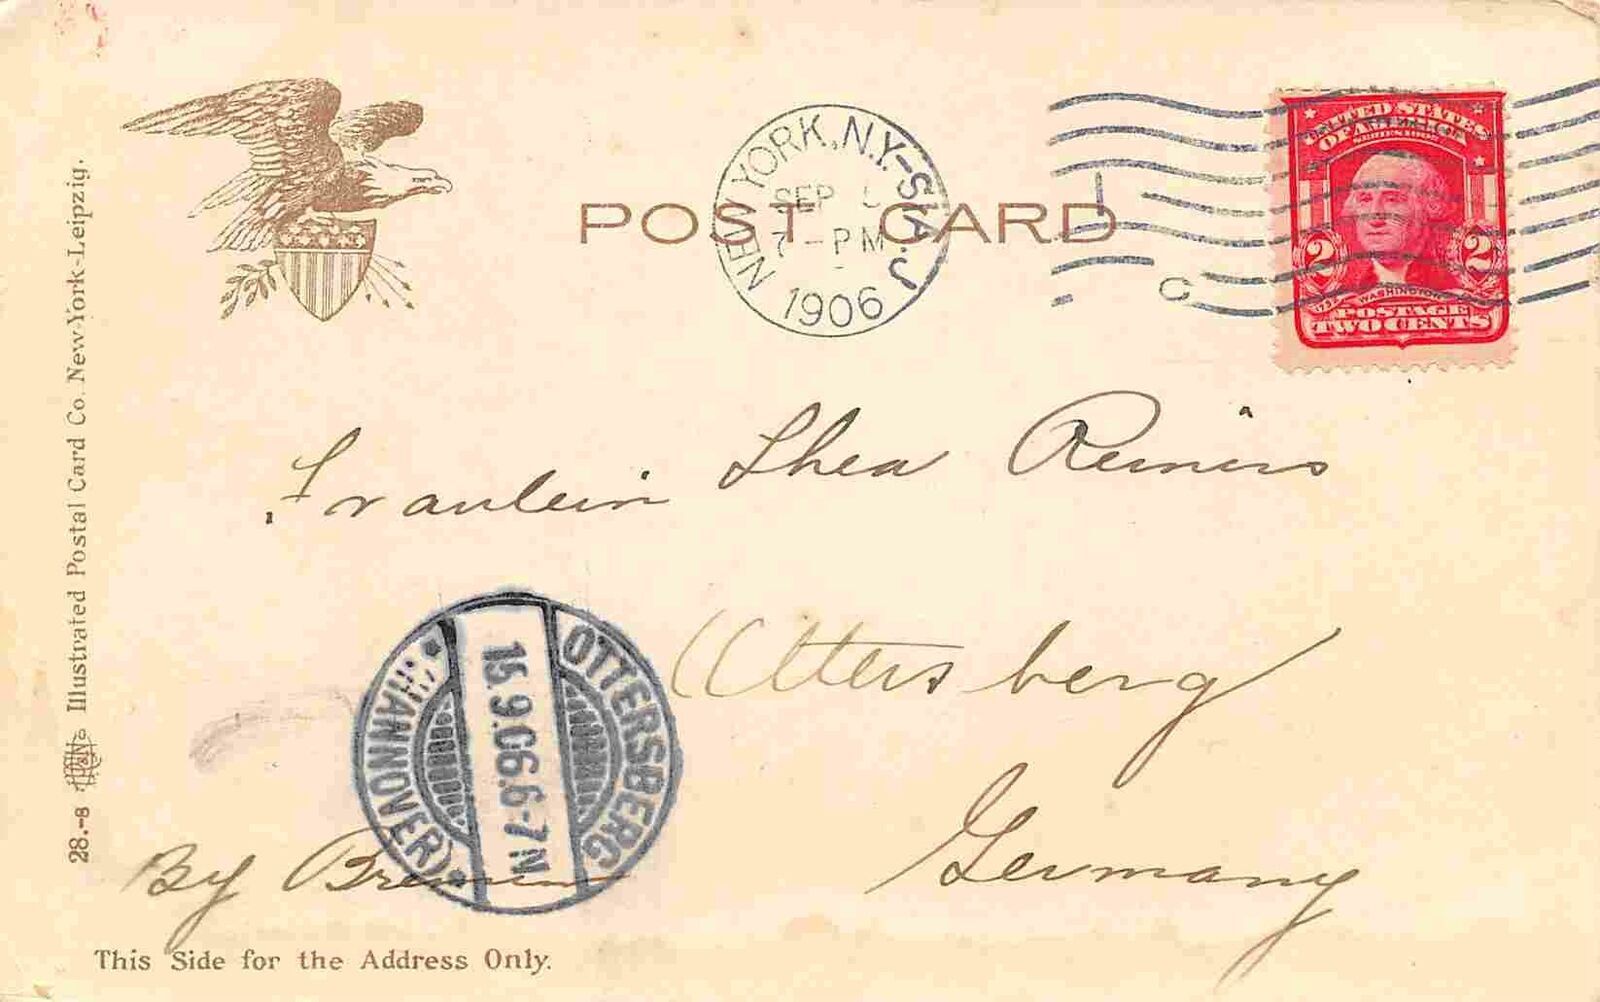 NEW YORK, N.Y.-STA.J
SEP
7-PM
1906
POST CARD
UNITED STATES
OF AMERICA
SERIES 1902
2 2
1732 WASHINGTON
POSTAGE
TWO CENTS
C
Fraulein Thea Reiners
Ottersberg
Germany
By Bremen
OTTERSBERG
15.9.06.6-7N
(HANNOVER)
28.-8 Illustrated Postal Card Co. New-York-Leipzig.
This Side for the Address Only.